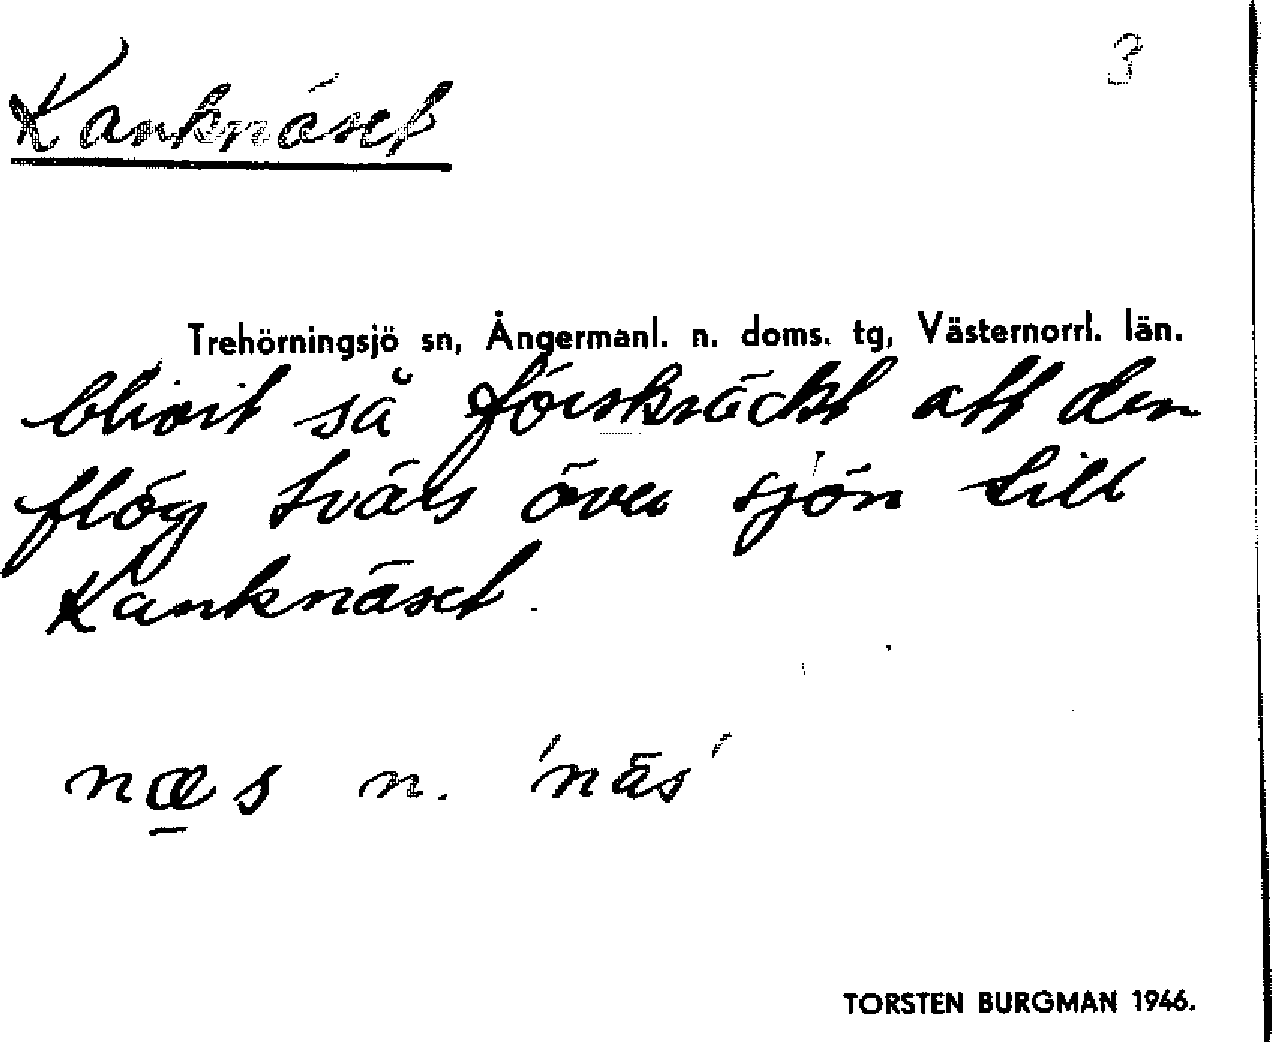 3
Kanknäset
Trehörningsjö sn, Ångermanl. n. doms. tg, Västernorrl. län.
blivit så förskräckt att den
flög tvärs över sjön till
Kanknäset.
næs n. 'näs'
TORSTEN BURGMAN 1946.